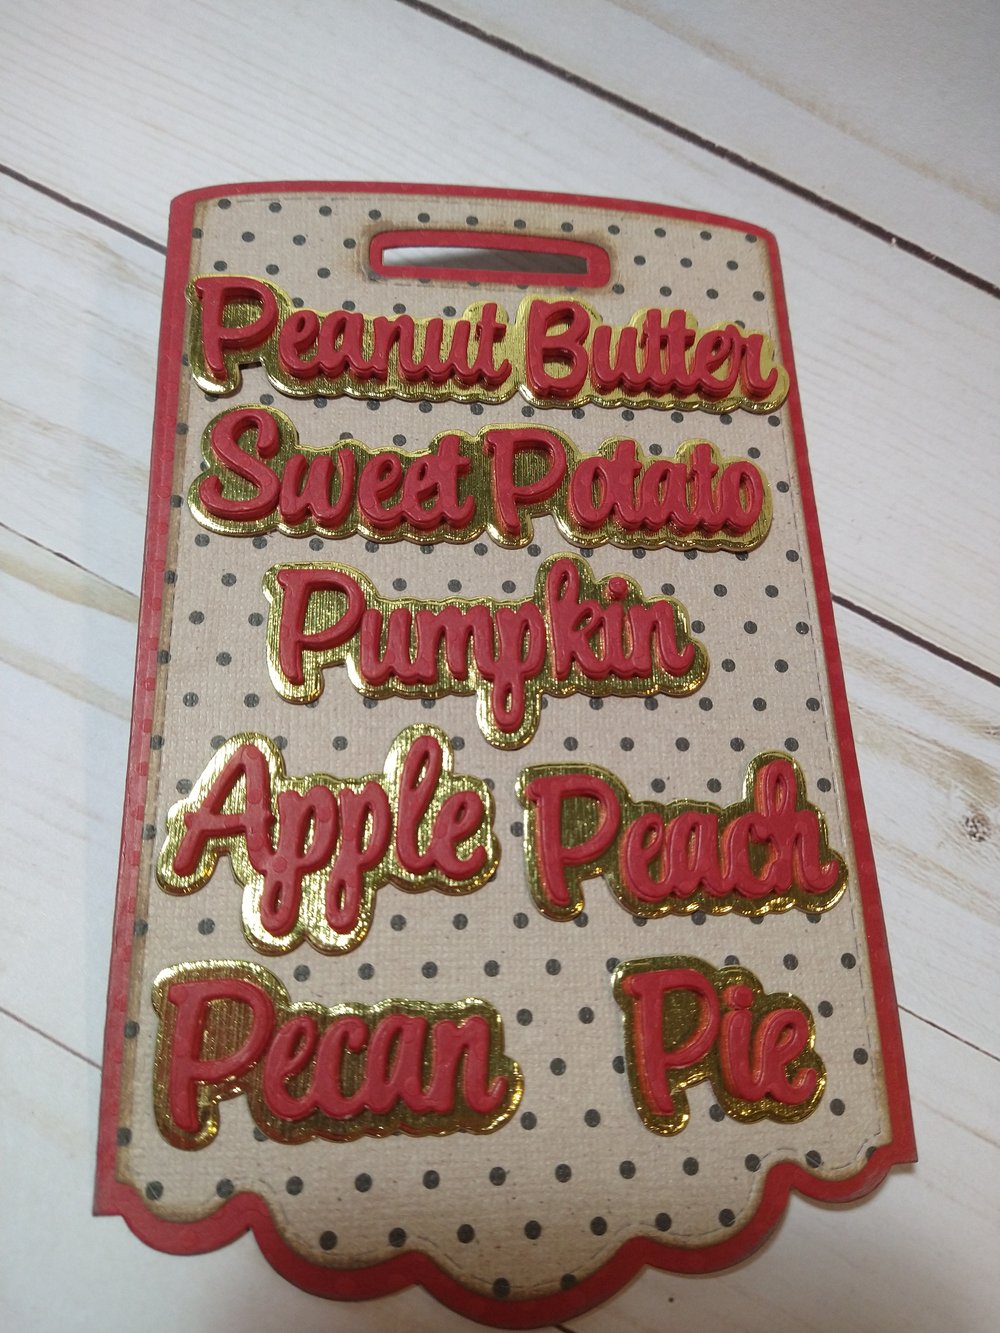 Peanut Butter
Sweet Potato
Pumpkin
Apple Peach
Pecan Pie